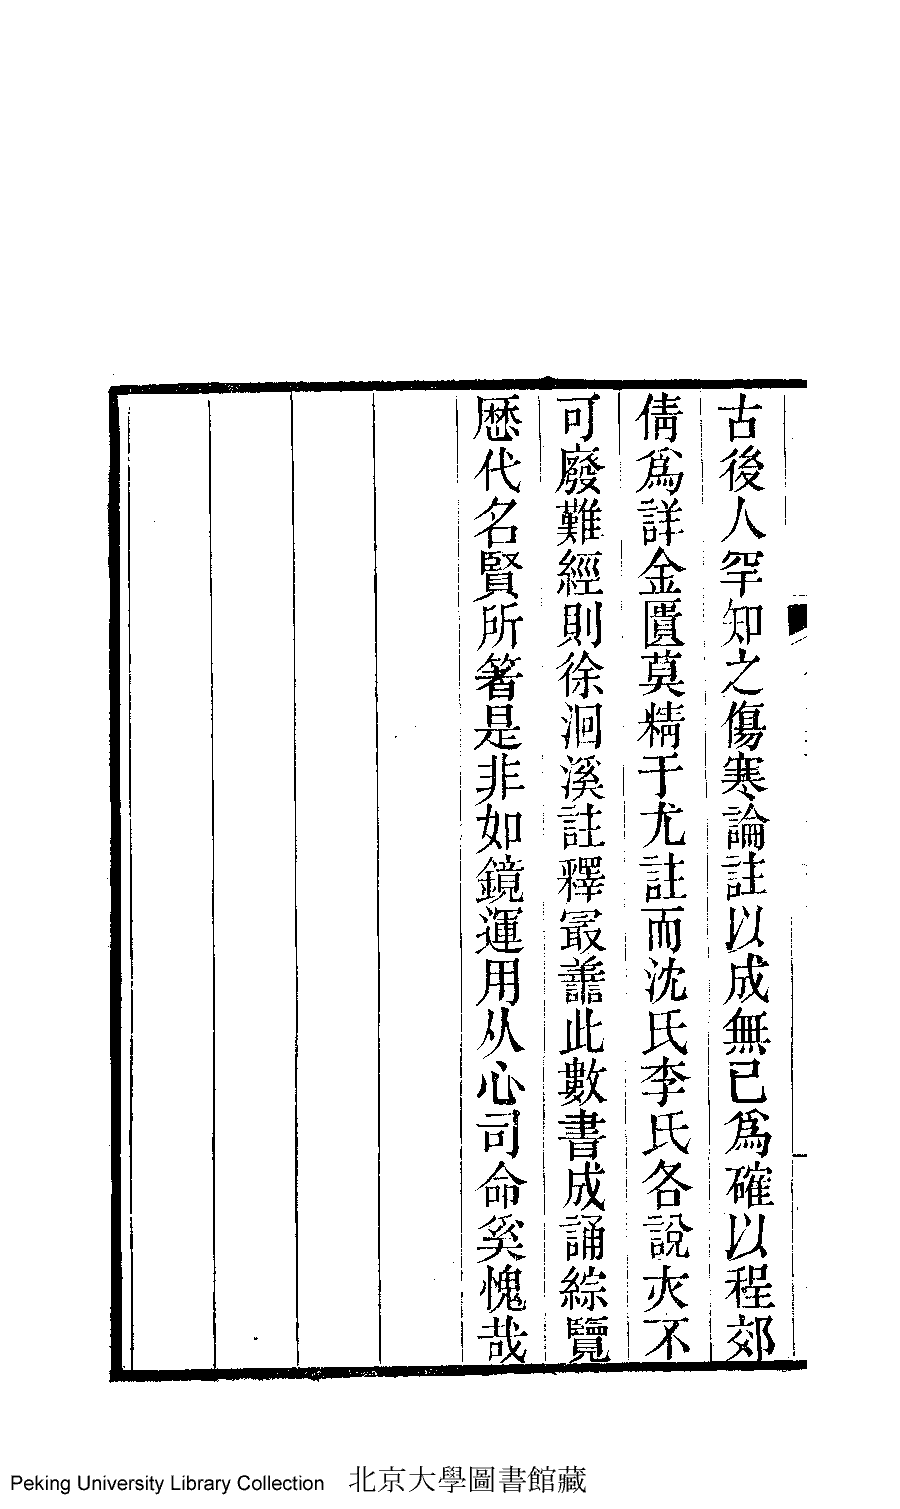 古後人罕知之傷寒論註以成無已爲確以程郊
倩爲詳金匱莫精于尤註而沈氏李氏各說亦不
可廢難經則徐洄溪註釋最譱此數書成誦綜覽
歷代名賢所著是非如鏡運用从心司命奚愧哉
Peking University Library Collection 北京大學圖書館藏